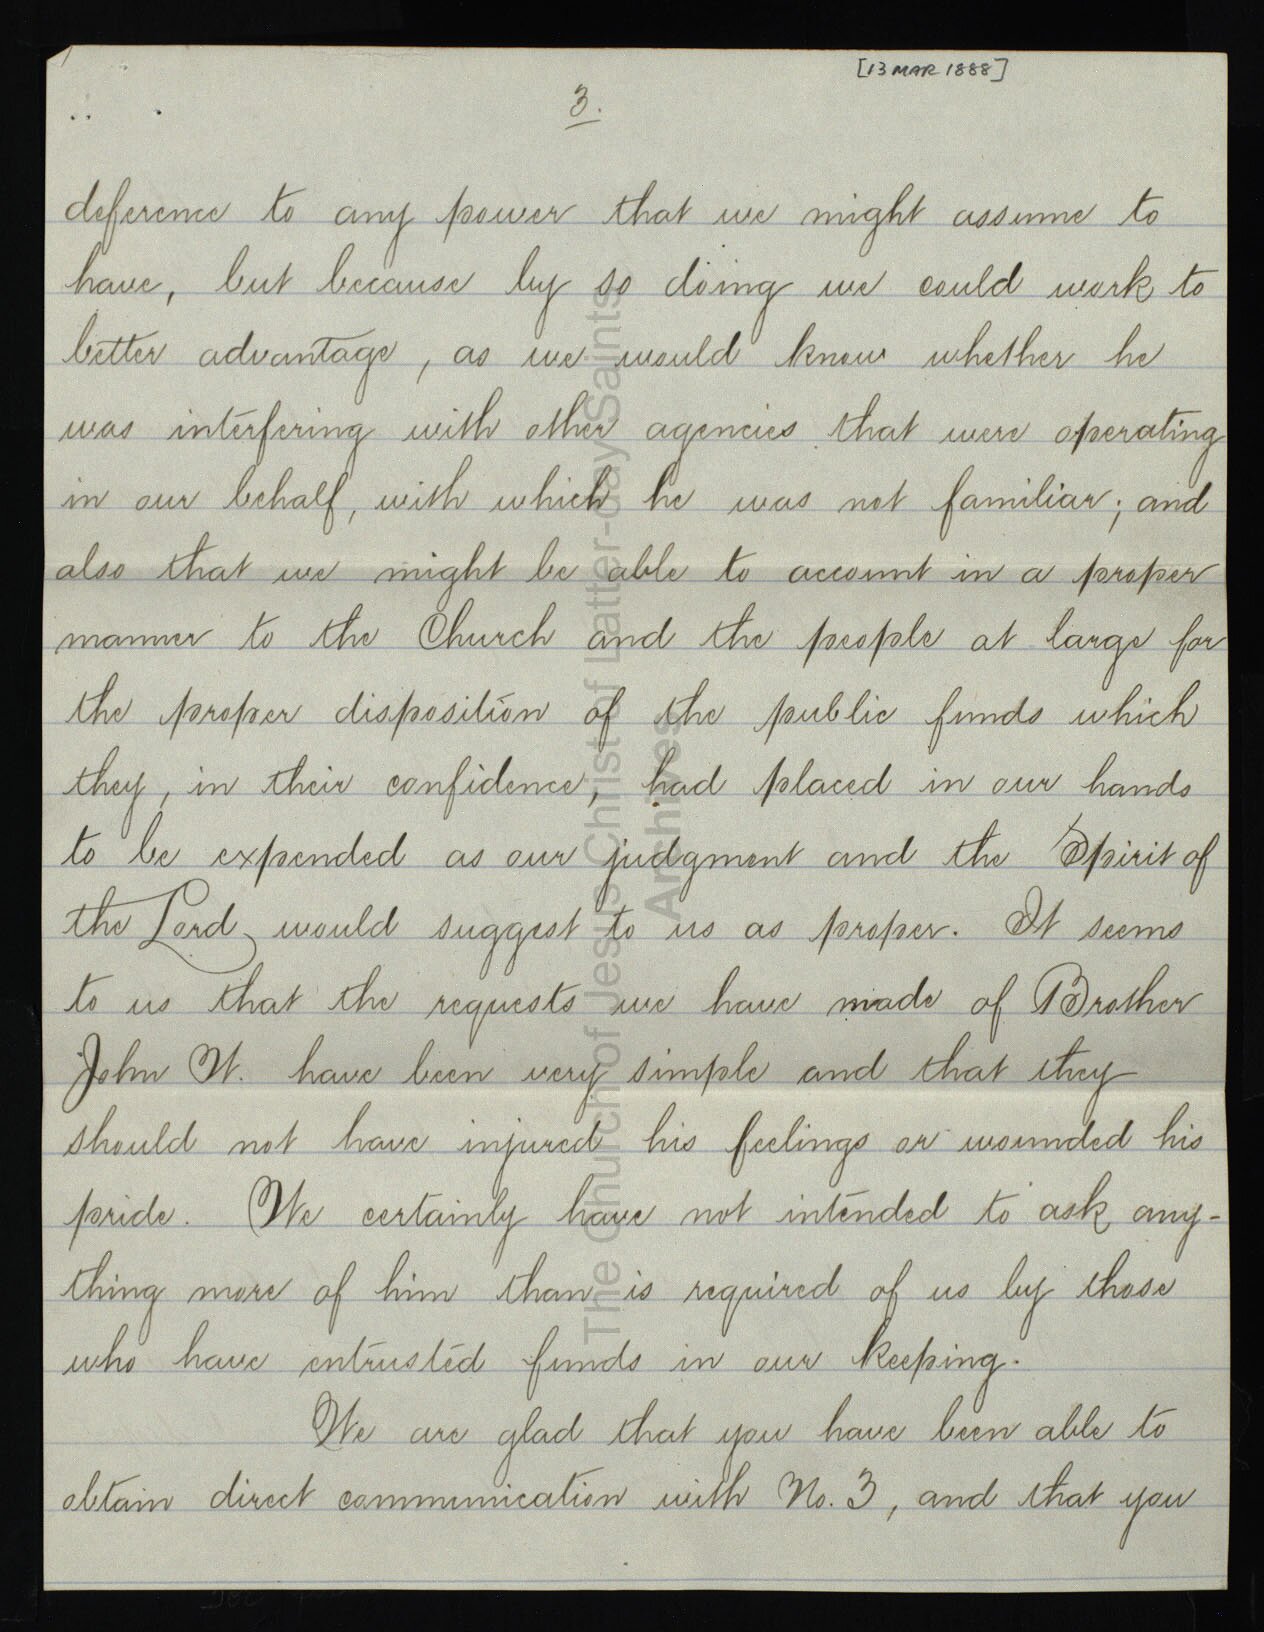 [13 MAR 1888]
3.
deference to any power that we might assume to
have, but because by so doing we could work to
better advantage, as we would know whether he
was interfering with other agencies that were operating
in our behalf, with which he was not familiar; and
also that we might be able to account in a proper
manner to the Church and the people at large for
the proper disposition of the public funds which
they, in their confidence, had placed in our hands
to be expended as our judgment and the Spirit of
the Lord would suggest to us as proper. It seems
to us that the requests we have made of Brother
John W. have been very simple and that they
should not have injured his feelings or wounded his
pride. We certainly have not intended to ask any-
thing more of him than is required of us by those
who have entrusted funds in our keeping.
We are glad that you have been able to
obtain direct communication with No. 3, and that you
The Church of Jesus Christ of Latter-day Saints
Archives